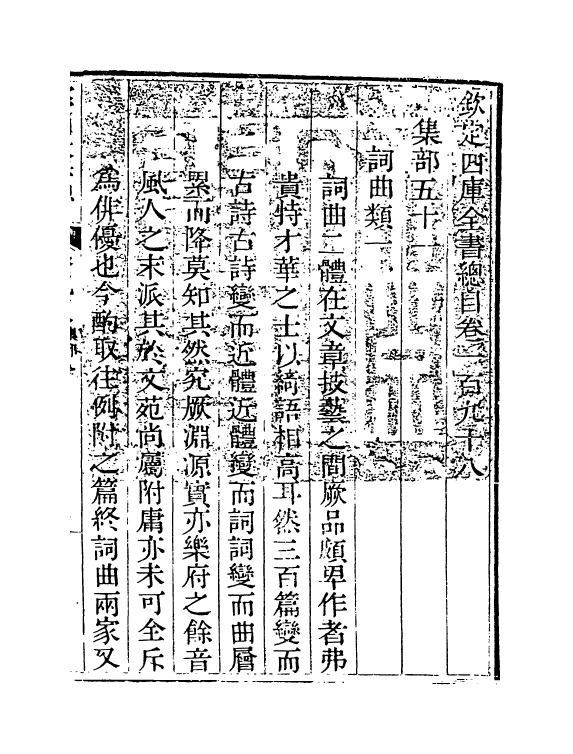 欽定四庫全書總目卷一百九十八
集部五十一
詞曲類一
詞曲二體在文章技藝之間厥品頗卑作者弗
貴特才華之士以綺語相高耳然三百篇變而
古詩古詩變而近體近體變而詞詞變而曲層
累而降莫知其然究厥淵源實亦樂府之餘音
風人之末派其於文苑尚屬附庸亦未可全斥
為俳優也今酌取往例附之篇終詞曲兩家又